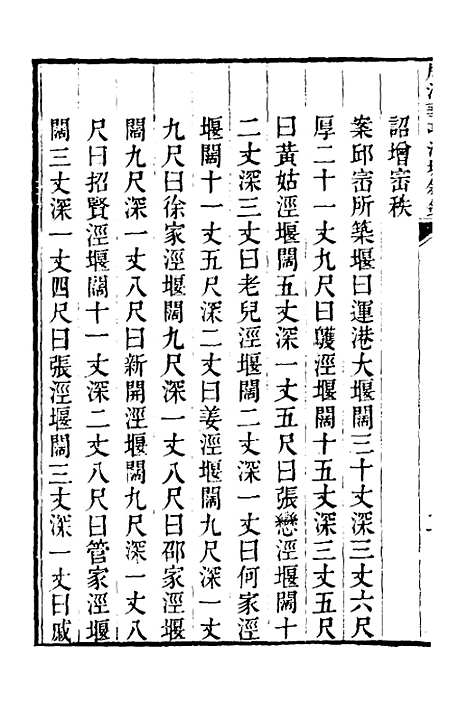 詔增崈秩
案邱崈所築堰曰運港大堰闊三十丈深三丈六尺
厚二十一丈九尺曰鸌涇堰闊十五丈深三丈五尺
曰黃姑涇堰闊五丈深一丈五尺曰張戀涇堰闊十
二丈深三丈曰老兒涇堰闊二丈深一丈曰何家涇
堰闊十一丈五尺深二丈曰姜涇堰闊九尺深一丈
九尺曰徐家涇堰闊九尺深一丈八尺曰邵家涇堰
闊九尺深一丈八尺曰新開涇堰闊九尺深一丈八
尺曰招賢涇堰闊十一丈深二丈八尺曰管家涇堰
闊三丈深一丈四尺曰張涇堰闊三丈深一丈曰戚